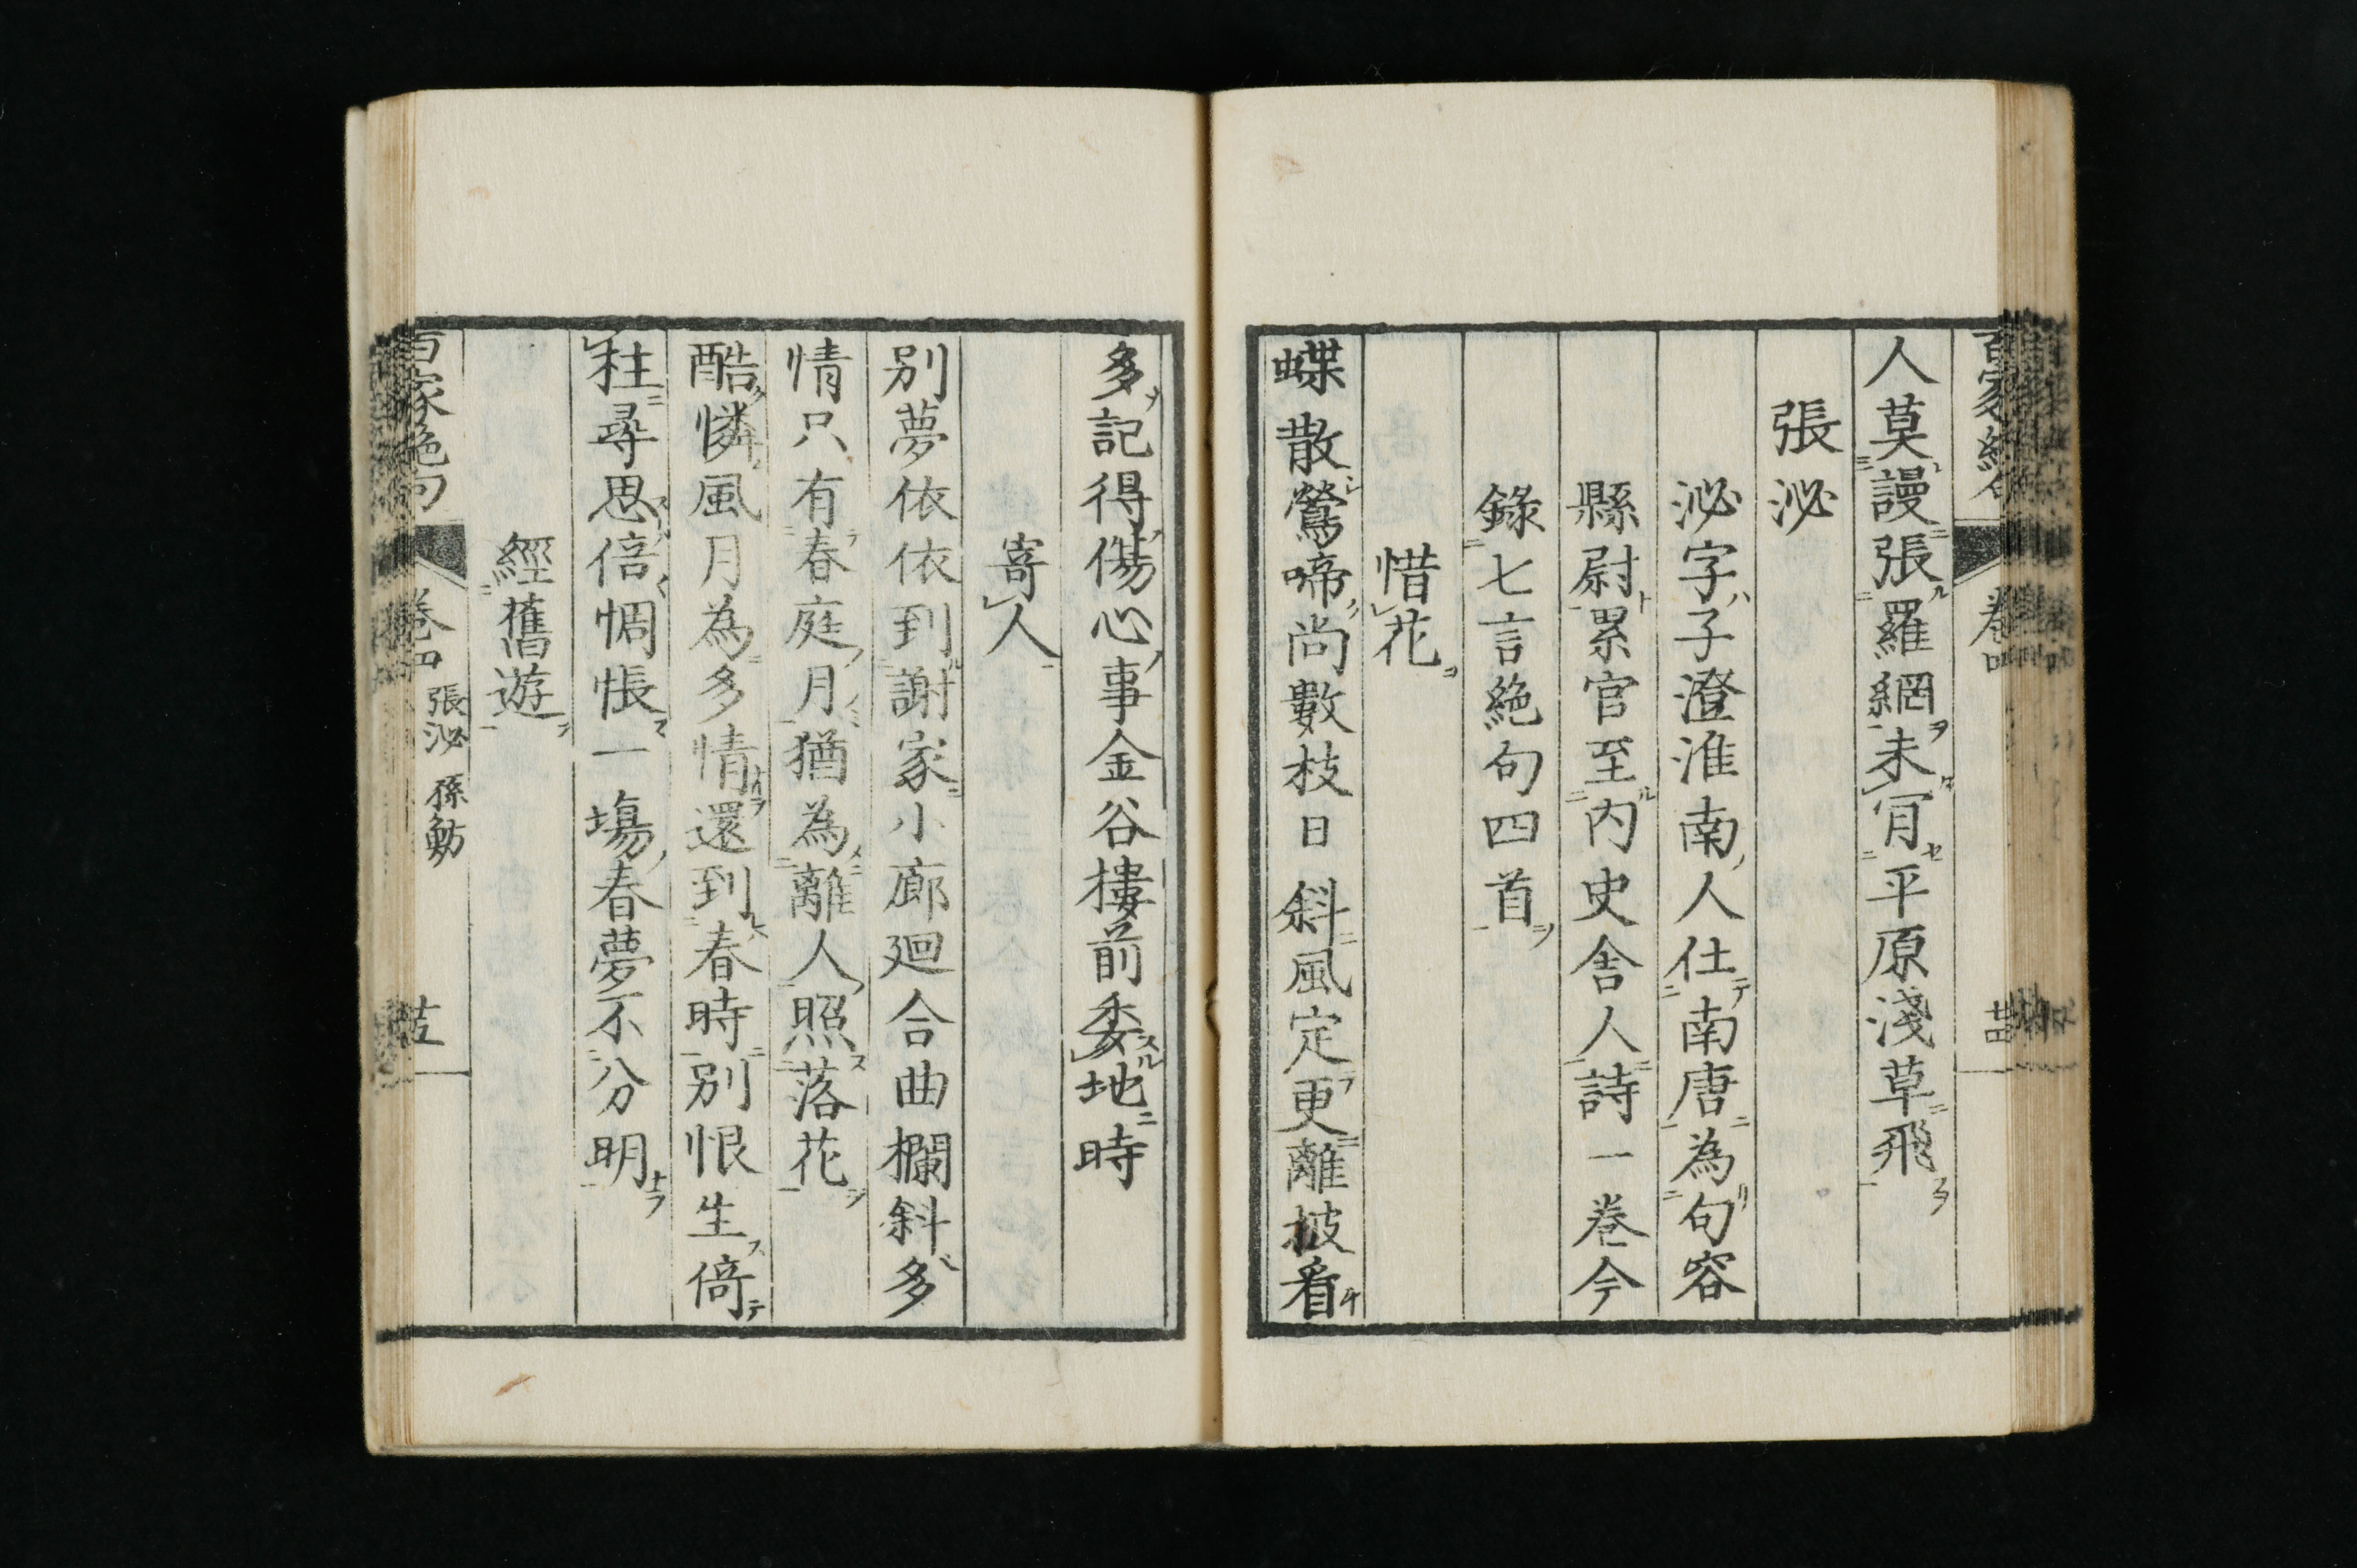 人莫謾張羅網未肎平原淺草飛
張泌
泌字子澄淮南人仕南唐為句容
縣尉累官至内史舍人詩一卷今
錄七言絶句四首
惜花
蝶散鶯啼尚數枝日斜風定更離披看
多記得傷心事金谷樓前委地時
寄人
別夢依依到謝家小廊廻合曲欄斜多
情只有春庭月猶為離人照落花
酷憐風月為多情還到春時別恨生倚
柱尋思倍惆悵一塲春夢不分明
經舊遊
百家絶句 卷四 張泌 孫魴 廿五